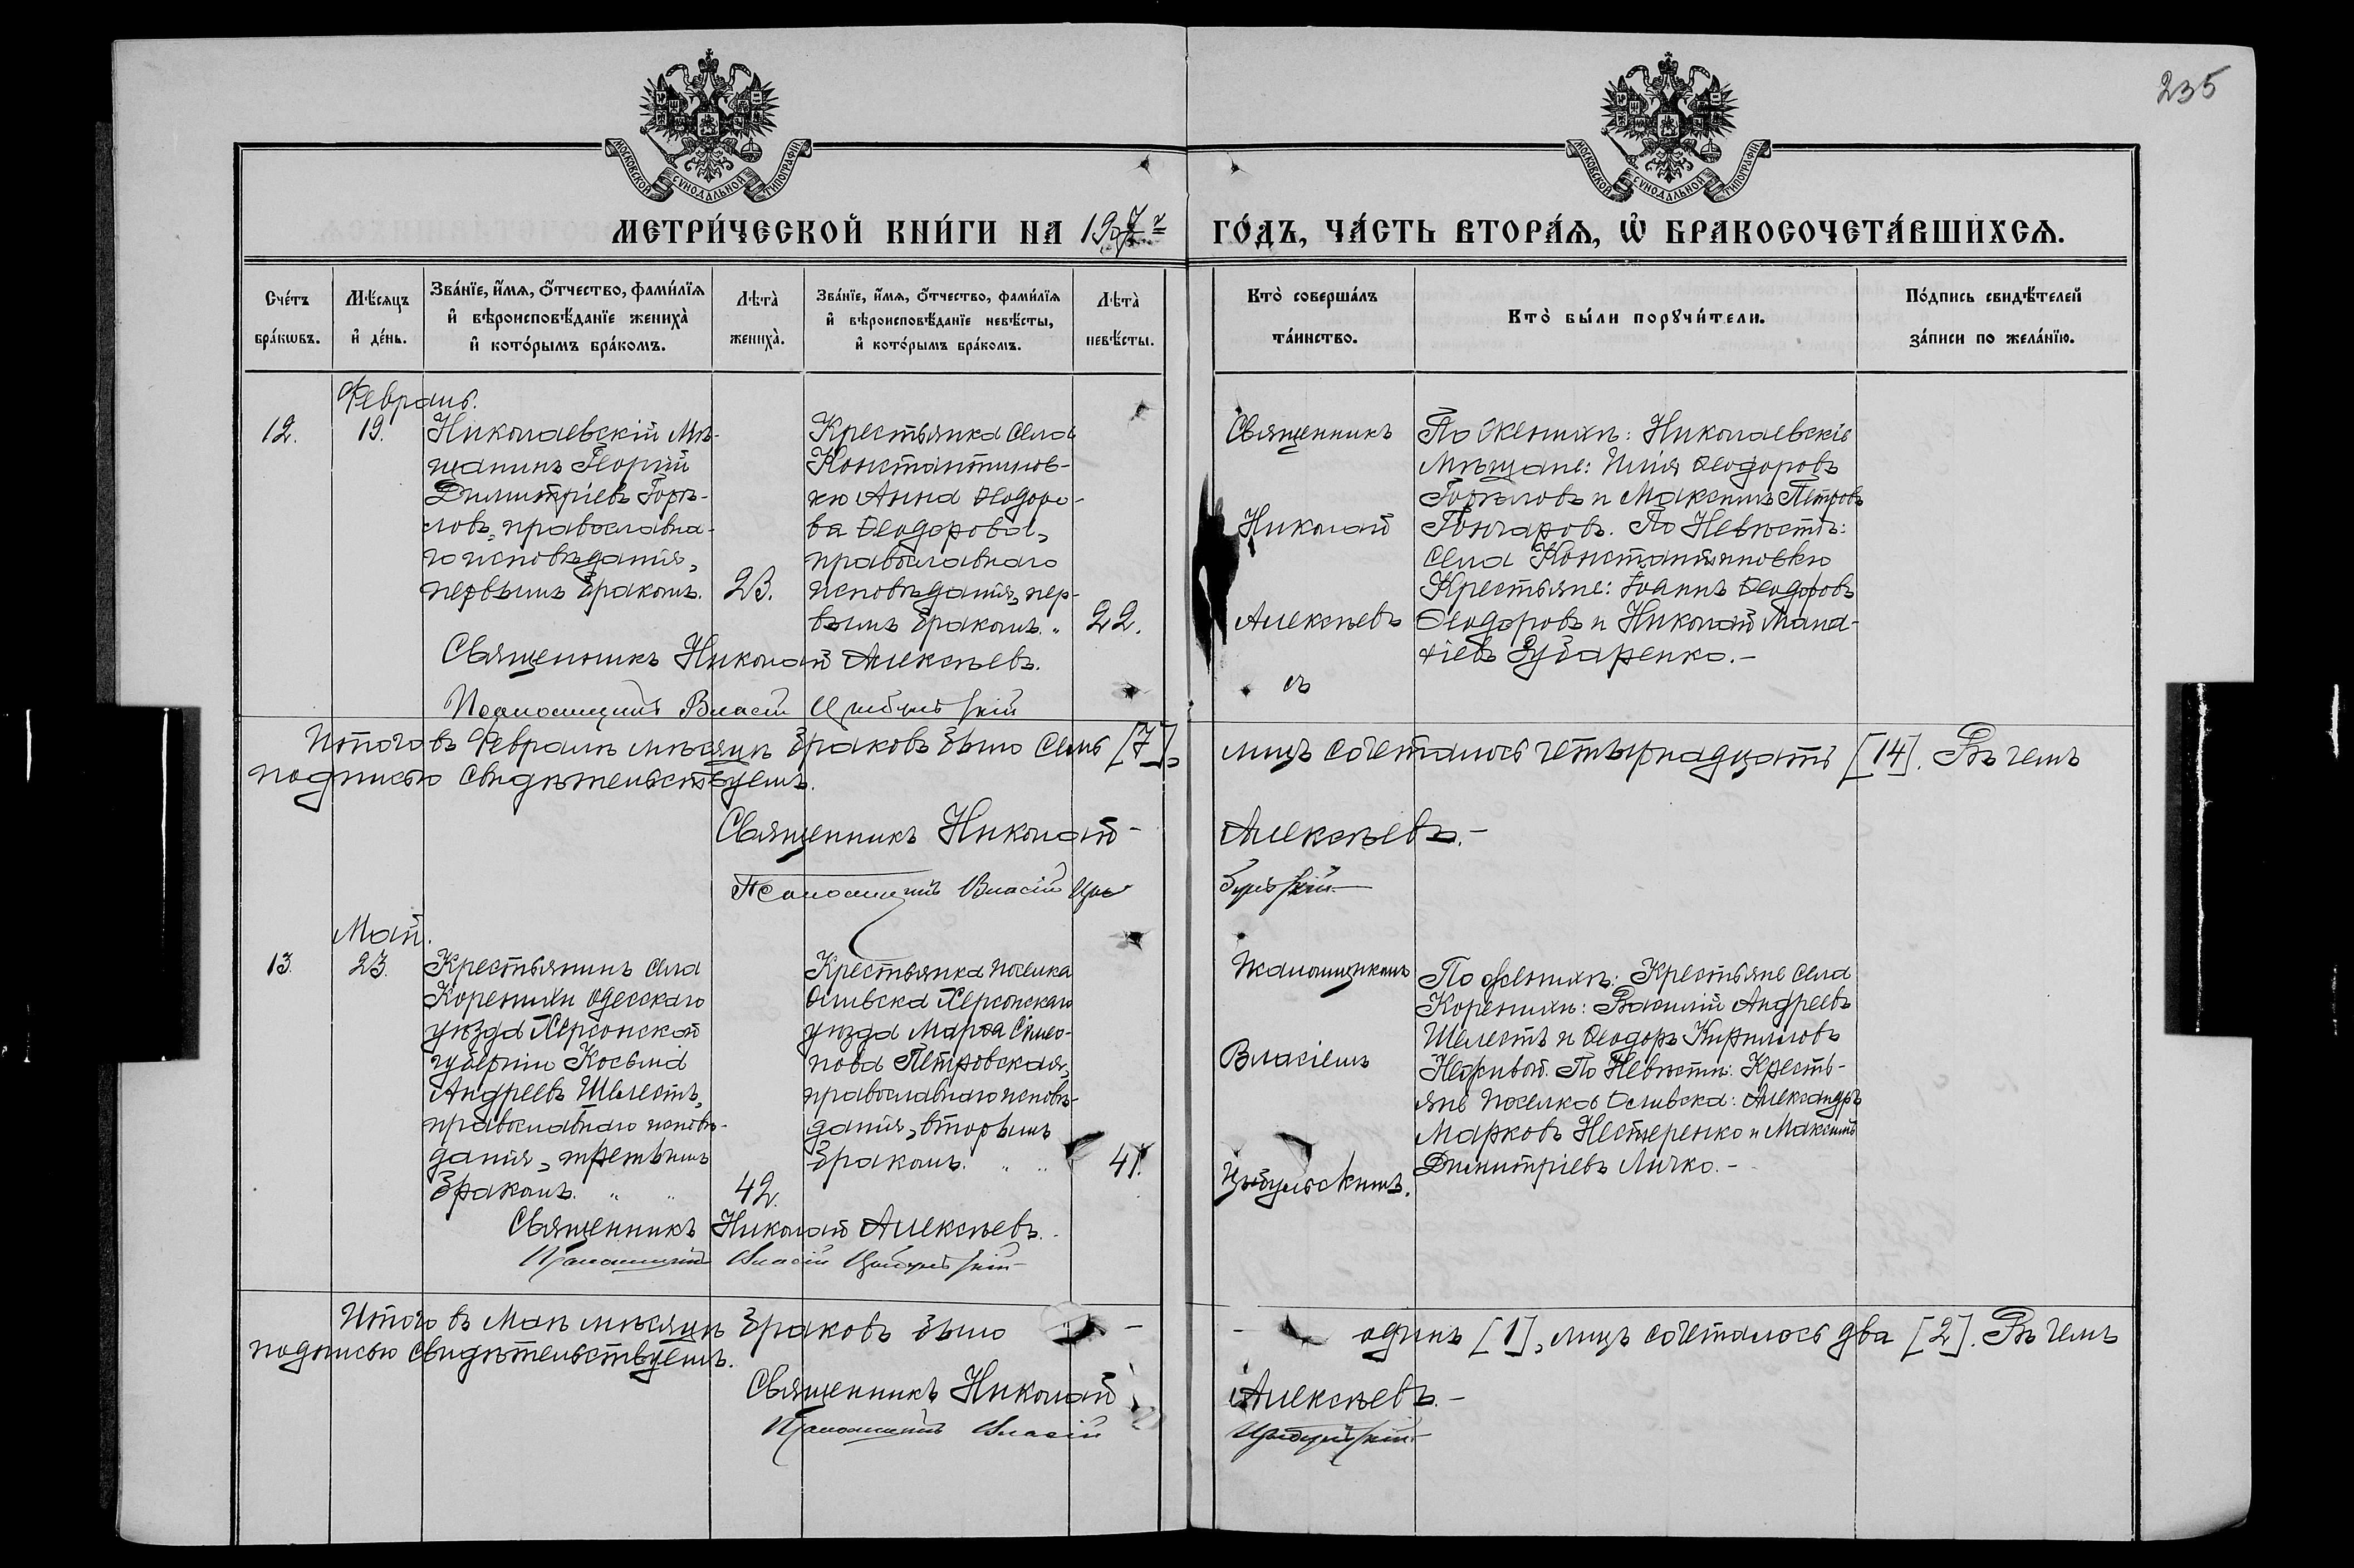 235
МОСКОВСКОЙ СѴНОДАЛЬНОЙ ТИПОГРАФІИ
МОСКОВСКОЙ СѴНОДАЛЬНОЙ ТИПОГРАФІИ
МЕТРИ́ЧЕСКОЙ КНИ́ГИ НА 1907 г ГО́ДЪ, ЧА́СТЬ ВТОРА́Ѧ, Ѡ҆ БРАКОСОЧЕТА́ВШИХСѦ.
Сче́тъ
бра́кѡвъ.
Мѣ́сѧцъ
и҆ де́нь.
Зва́нїе, и҆́мѧ, ѻ҆́тчество, фами́лїѧ
и҆ вѣроисповѣ́данїе жениха̀
и҆ кото́рымъ бра́комъ.
Лѣта̀
жениха̀.
Зва́нїе, и҆́мѧ, ѻ҆́тчество, фами́лїѧ
и҆ вѣроисповѣ́данїе невѣ́сты,
и҆ кото́рымъ бра́комъ.
Лѣта̀
невѣ́сты.
Кто̀ соверша́лъ
та́инство.
Кто̀ бы́ли порꙋчи́тели.
По́дпись свидѣ́телей
за́писи по жела́нїю.
Февраль.
12.
19.
Николаевскій Мѣ-
щанинъ Георгій
Димитріевъ Горѣ-
ловъ, православна-
го исповѣданія,
первымъ бракомъ.
23.
Крестьянка села
Константинов-
ки Анна Ѳеодоро-
ва Ѳеодорова,
православнаго
исповѣданія, пер-
вымъ бракомъ. "
22.
Священникъ
Николай
Алексѣевъ
съ
По Женихѣ: Николаевскіе
Мѣщане: Илія Ѳеодоровъ
Горѣловъ и Максимъ Петровъ
Гончаровъ. По Невѣстѣ:
села Константиновки
Крестьяне: Іоаннъ Ѳеодоровъ
Ѳеодоровъ и Николай Мата-
ѳіевъ Зубаренко.-
Священникъ Николай Алексѣевъ.
Псаломщикъ Власій Цыбульскій
Итого въ Февралѣ мѣсяцѣ браковъ было семь [7], лицъ сочеталось четырнадцать [14]. Въ чемъ
подписью свидѣтельствуемъ.
Священникъ Николай - Алексѣевъ.-
Псаломщикъ Власій Цыбульскій
Май.
13.
23.
Крестьянинъ села
Коренихи Одесскаго
уѣзда Херсонской
губерніи Косьма
Андреевъ Шелестъ,
православнаго исповѣ-
данія, третьимъ
бракомъ. " "
42.
Крестьянка поселка
Херсонскаго
уѣзда Марѳа Симео-
нова Петровская,
православнаго исповѣ-
данія, вторымъ
бракомъ. " "
41.
Псаломщикомъ
Власіемъ
Цыбульскимъ.
По Женихѣ: Крестьяне села
Коренихи: Василій Андреевъ
Шелестъ и Ѳеодоръ Кирилловъ
По Невѣстѣ: Кресть-
яне поселка Александръ
Марковъ Нестеренко и Максимъ
Димитріевъ Личко.-
Священникъ Николай Алексѣевъ.
Псаломщикъ Власій Цыбульскій
Итого въ Маѣ мѣсяцѣ браковъ было - - одинъ [1], лицъ сочеталось два [2]. Въ чемъ
подписью свидѣтельствуемъ.
Священникъ Николай Алексѣевъ.-
Псаломщикъ Власій Цыбульскій